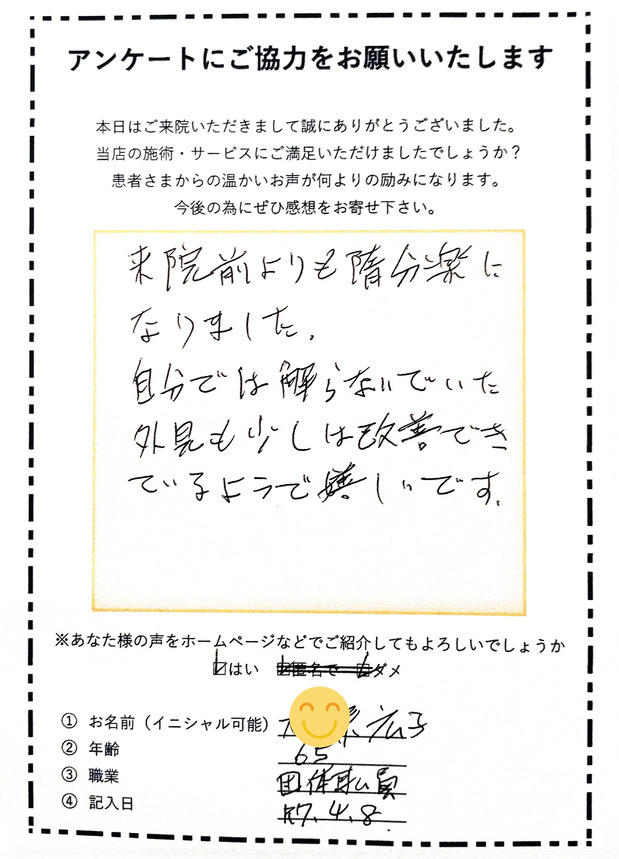 アンケートにご協力をお願いいたします
本日はご来院いただきまして誠にありがとうございました。
当店の施術・サービスにご満足いただけましたでしょうか？
患者さまからの温かいお声が何よりの励みになります。
今後の為にぜひ感想をお寄せ下さい。
来院前よりも随分楽に
なりました.
自分では解らないでいた
外見も少しは改善でき
ているようで嬉しいです.
※あなた様の声をホームページなどでご紹介してもよろしいでしょうか
☑はい 匿名で ダメ
① お名前（イニシャル可能） 広子
② 年齢 65
③ 職業 団体職員
④ 記入日 R7.4.8.